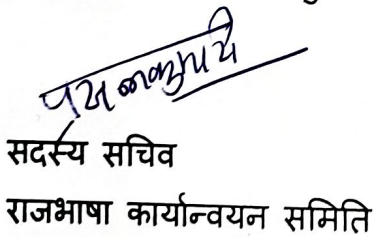 सदस्य सचिव
राजभाषा कार्यान्वयन समिति